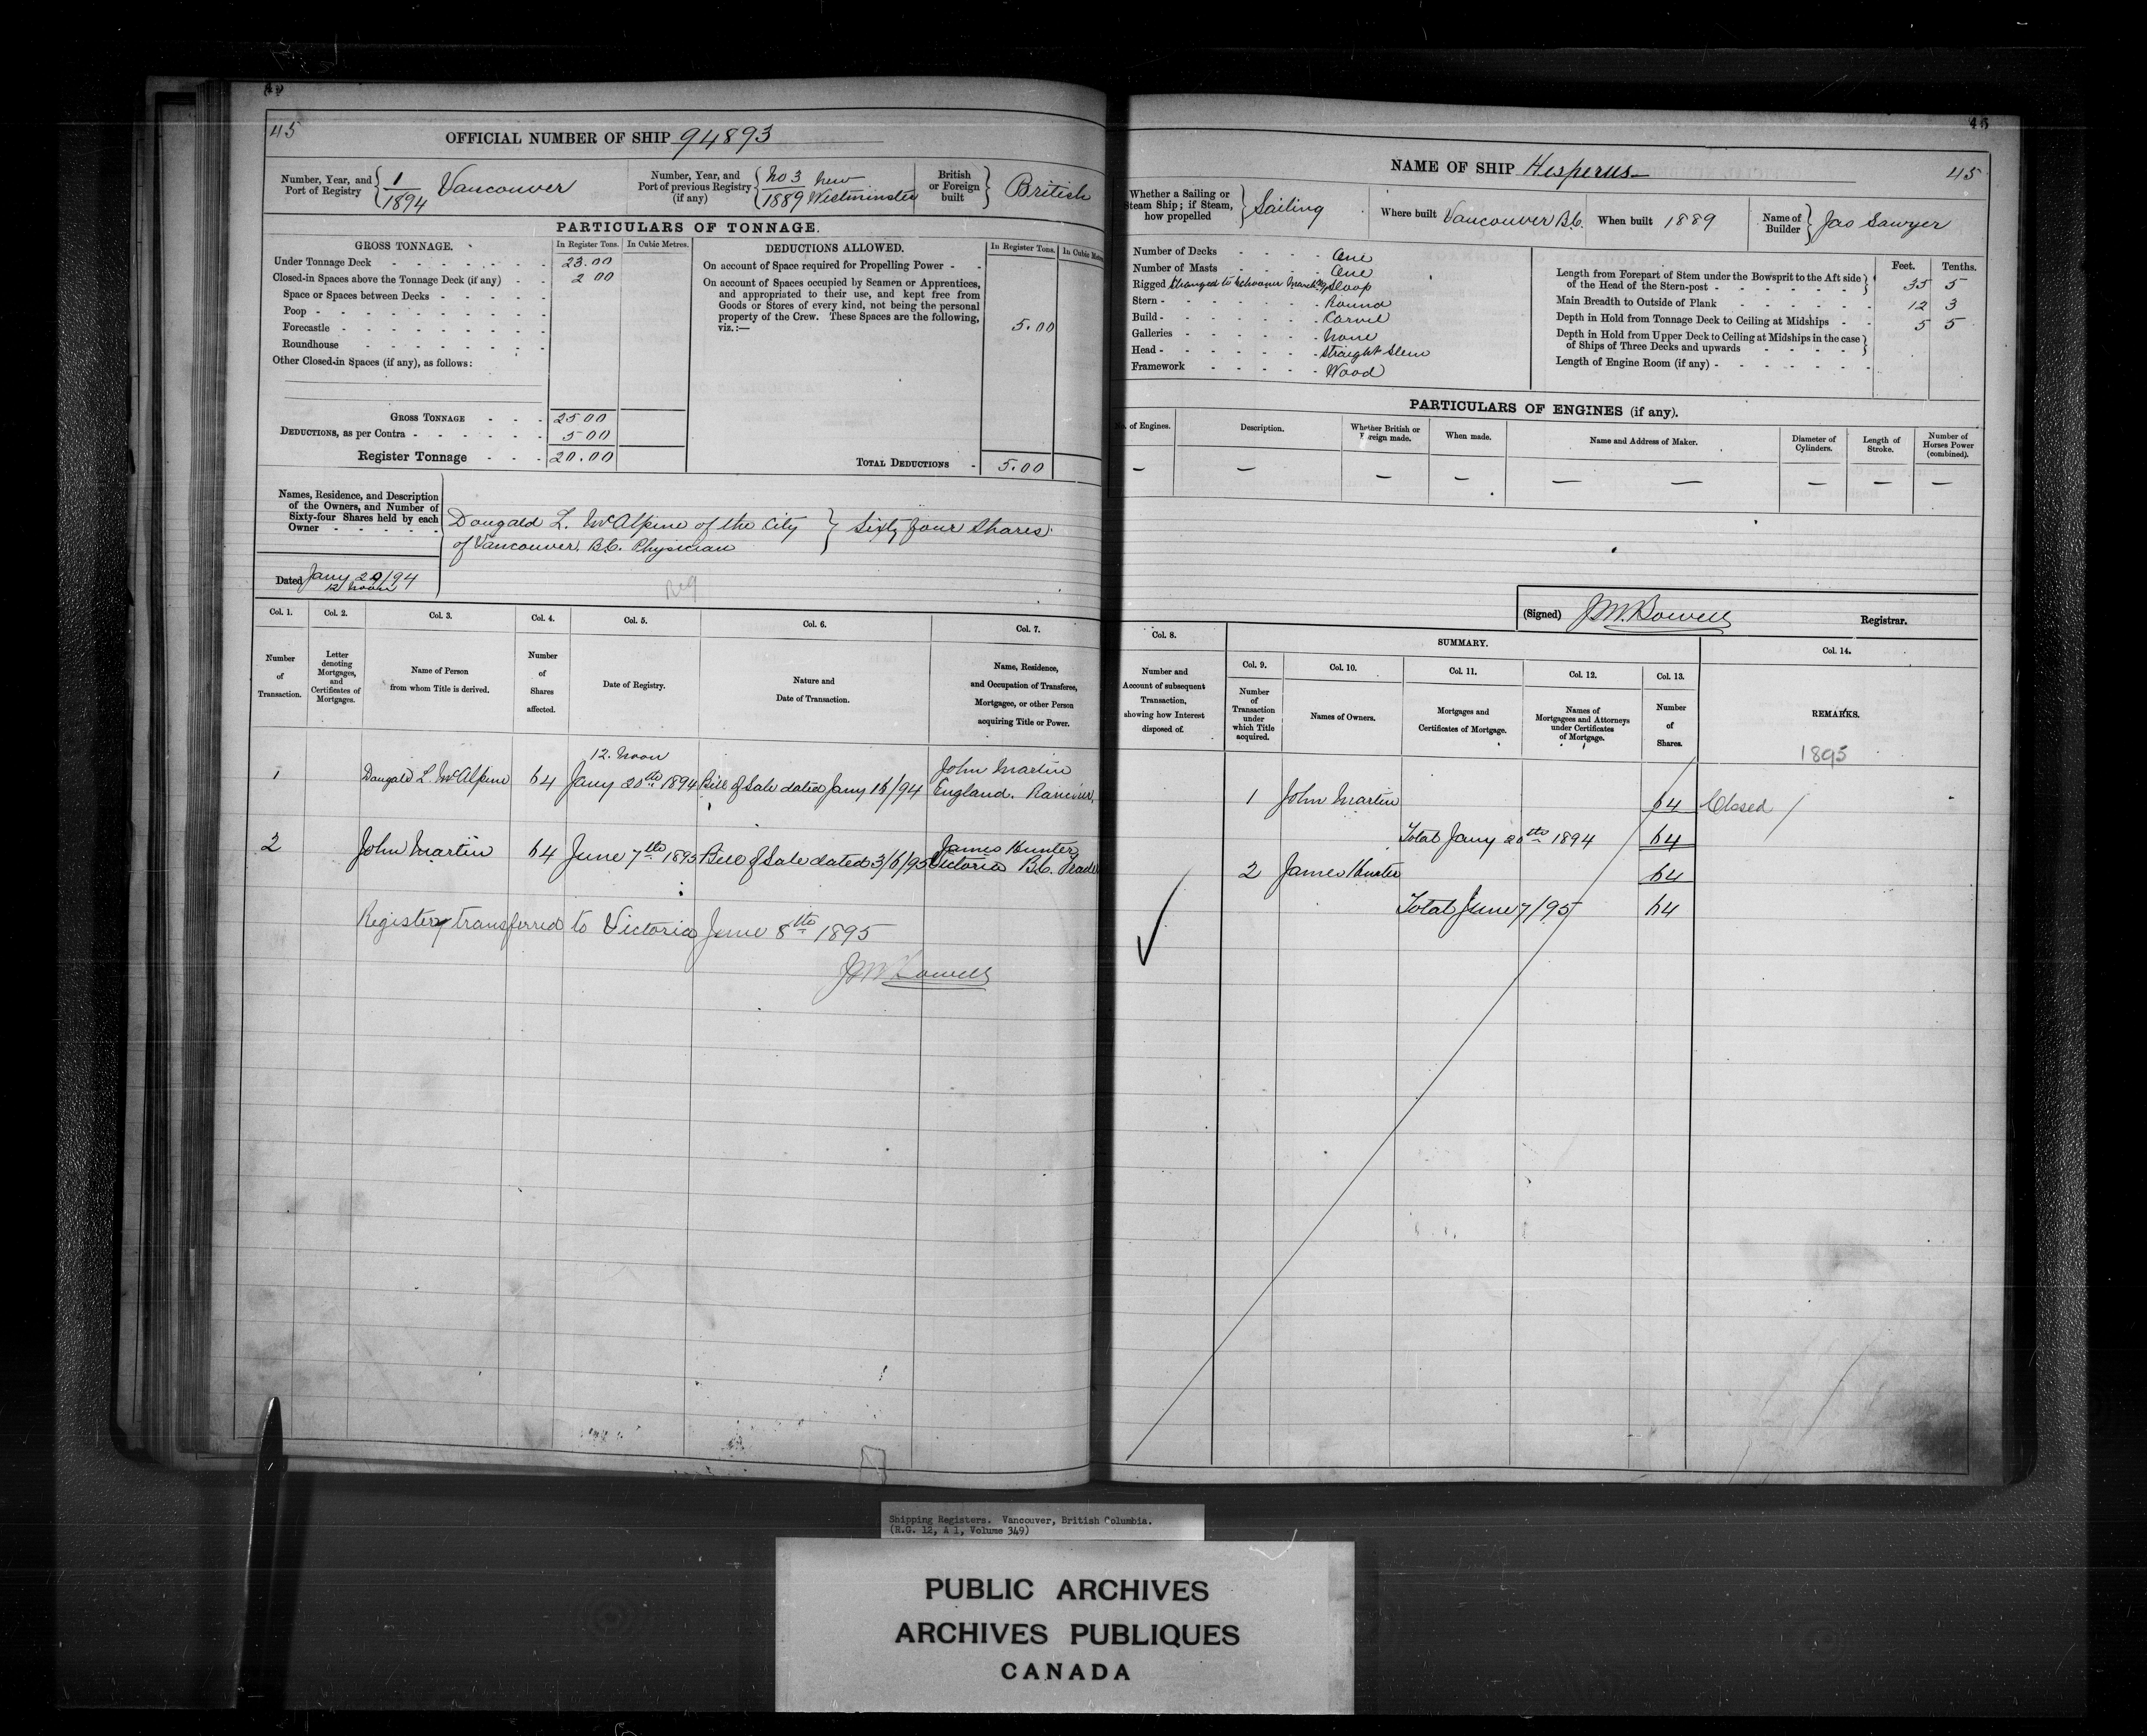 45
OFFICIAL NUMBER OF SHIP 94893
Number, Year, and Port of Registry 1/1894 Vancouver
Number, Year, and Port of previous Registry (if any) No 3/1889 New Westminster
British or Foreign built British
PARTICULARS OF TONNAGE.
GROSS TONNAGE. In Register Tons. In Cubic Metres.
Under Tonnage Deck 23.00
Closed-in Spaces above the Tonnage Deck (if any) 2 00
Space or Spaces between Decks
Poop
Forecastle
Roundhouse
Other Closed-in Spaces (if any), as follows:
GROSS TONNAGE 25 00
DEDUCTIONS, as per Contra 5 00
Register Tonnage 20.00
DEDUCTIONS ALLOWED. In Register Tons. In Cubic
On account of Space required for Propelling Power
On account of Spaces occupied by Seamen or Apprentices,
and appropriated to their use, and kept free from
Goods or Stores of every kind, not being the personal
property of the Crew. These Spaces are the following,
viz.:— 5.00
TOTAL DEDUCTIONS 5.00
Names, Residence, and Description
of the Owners, and Number of
Sixty-four Shares held by each
Owner
Dougald L. McAlpine of the City
of Vancouver. B.C. Physician
Sixty four Shares
Dated Jany 20/94
12 Noon
Reg
Col. 1. Col. 2. Col. 3. Col. 4. Col. 5. Col. 6. Col. 7.
Number of Transaction.
Letter denoting Mortgages, and Certificates of Mortgages.
Name of Person from whom Title is derived.
Number of Shares affected.
Date of Registry.
Nature and Date of Transaction.
Name, Residence, and Occupation of Transferee, Mortgagee, or other Person acquiring Title or Power.
12. Noon
1 Dougald L. McAlpine 64 Jany 20th 1894 Bill of Sale dated Jany 16/94 John Martin England.
2 John Martin 64 June 7th 1895 Bill of Sale dated 3/6/95 James Hunter Victoria B.C.
Registery transferred to Victoria June 8th 1895
JM Bowell
45
NAME OF SHIP Hesperus
45
Whether a Sailing or Steam Ship; if Steam, how propelled Sailing
Where built Vancouver B.C.
When built 1889
Name of Builder Jas Sawyer
Number of Decks One
Number of Masts One
Rigged Sloop
changed to Schooner
Stern Round
Build Carvel
Galleries None
Head Straight Stem
Framework Wood
Feet. Tenths.
Length from Forepart of Stem under the Bowsprit to the Aft side
of the Head of the Stern-post 35 5
Main Breadth to Outside of Plank 12 3
Depth in Hold from Tonnage Deck to Ceiling at Midships 5 5
Depth in Hold from Upper Deck to Ceiling at Midships in the case
of Ships of Three Decks and upwards
Length of Engine Room (if any)
PARTICULARS OF ENGINES (if any).
of Engines.
Description.
Whether British or Foreign made.
When made.
Name and Address of Maker.
Diameter of Cylinders.
Length of Stroke.
Number of Horses Power (combined).
— — — — — — — — —
(Signed) JM. Bowell Registrar.
Col. 8. SUMMARY. Col. 14.
Col. 9. Col. 10. Col. 11. Col. 12. Col. 13.
Number and Account of subsequent Transaction, showing how Interest disposed of.
Number of Transaction under which Title acquired.
Names of Owners.
Mortgages and Certificates of Mortgage.
Names of Mortgagees and Attorneys under Certificates of Mortgage.
Number of Shares.
REMARKS.
1895
1 John Martin 64 Closed
Total Jany 20th 1894 64
2 James Hunter 64
Total June 7/95 64
Shipping Registers. Vancouver, British Columbia.
(R.G. 12, A 1, Volume 349)
PUBLIC ARCHIVES
ARCHIVES PUBLIQUES
CANADA